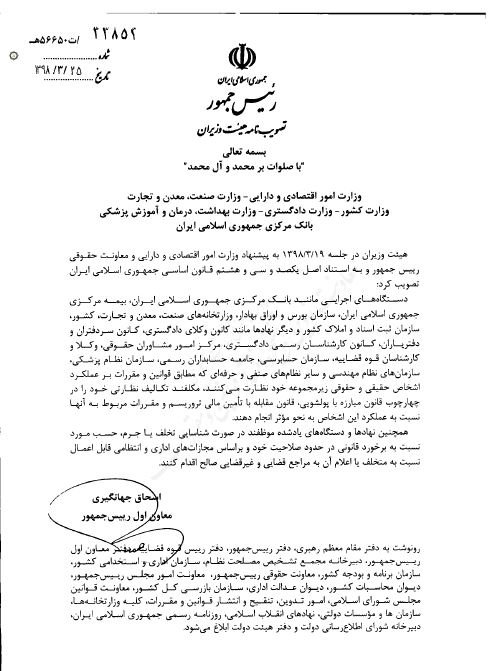 ۳۲۸۵۲ /ت۵۶۶۵۰هـ
شماره
تاریخ ۱۳۹۸/۳/۲۵
جمهوری اسلامی ایران
رئیس جمهور
تصویب نامه هیئت وزیران
بسمه تعالی
"با صلوات بر محمد و آل محمد"
وزارت امور اقتصادی و دارایی - وزارت صنعت، معدن و تجارت
وزارت کشور - وزارت دادگستری - وزارت بهداشت، درمان و آموزش پزشکی
بانک مرکزی جمهوری اسلامی ایران
هیئت وزیران در جلسه ۱۳۹۸/۳/۱۹ به پیشنهاد وزارت امور اقتصادی و دارایی و معاونت حقوقی
رییس جمهور و به استناد اصل یکصد و سی و هشتم قانون اساسی جمهوری اسلامی ایران
تصویب کرد:
دستگاه‌های اجرایی مانند بانک مرکزی جمهوری اسلامی ایران، بیمه مرکزی
جمهوری اسلامی ایران، سازمان بورس و اوراق بهادار، وزارتخانه‌های صنعت، معدن و تجارت، کشور،
سازمان ثبت اسناد و املاک کشور و دیگر نهادها مانند کانون وکلای دادگستری، کانون سردفتران و
دفتریاران، کانون کارشناسان رسمی دادگستری، مرکز امور مشاوران حقوقی، وکلا و
کارشناسان قوه قضاییه، سازمان حسابرسی، جامعه حسابداران رسمی، سازمان نظام پزشکی،
سازمان‌های نظام مهندسی و سایر نظام‌های صنفی و حرفه‌ای که مطابق قوانین و مقررات بر عملکرد
اشخاص حقیقی و حقوقی زیرمجموعه خود نظارت می‌کنند، مکلفند تکالیف نظارتی خود را در
چهارچوب قانون مبارزه با پولشویی، قانون مقابله با تأمین مالی تروریسم و مقررات مربوط به آنها
نسبت به عملکرد این اشخاص به نحو مؤثر انجام دهند.
همچنین نهادها و دستگاه‌های یادشده موظفند در صورت شناسایی تخلف یا جرم، حسب مورد
نسبت به برخورد قانونی در حدود صلاحیت خود و براساس مجازات‌های اداری و انتظامی قابل اعمال
نسبت به متخلف یا اعلام آن به مراجع قضایی و غیرقضایی صالح اقدام کنند.
اسحاق جهانگیری
معاون اول رییس‌جمهور
رونوشت به دفتر مقام معظم رهبری، دفتر رییس‌جمهور، دفتر رییس قوه قضاییه، دفتر معاون اول
رییس‌جمهور، دبیرخانه مجمع تشخیص مصلحت نظام، سازمان اداری و استخدامی کشور،
سازمان برنامه و بودجه کشور، معاونت حقوقی رییس‌جمهور، معاونت امور مجلس رییس‌جمهور،
دیوان محاسبات کشور، دیوان عدالت اداری، سازمان بازرسی کل کشور، معاونت قوانین
مجلس شورای اسلامی، امور تدوین، تنقیح و انتشار قوانین و مقررات، کلیه وزارتخانه‌ها،
سازمان ها و مؤسسات دولتی، نهادهای انقلاب اسلامی، روزنامه رسمی جمهوری اسلامی ایران،
دبیرخانه شورای اطلاع‌رسانی دولت و دفتر هیئت دولت ابلاغ می‌شود.